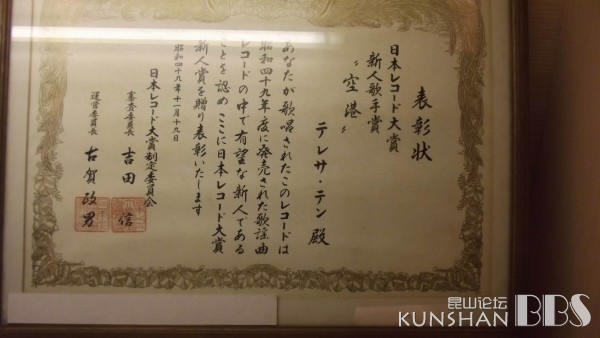 表彰状
日本レコード大賞
新人歌手賞
〝空港〟
テレサ・テン 殿
あなたが歌唱されたこのレコードは
昭和四十九年度に発売された歌謡曲
レコードの中で有望な新人である
ことを認め ここに日本レコード大賞
新人賞を贈り表彰いたします
昭和四十九年十一月十九日
日本レコード大賞制定委員会
審査委員長 吉田 信
運営委員長 古賀政男
昆山论坛
KUNSHAN BBS